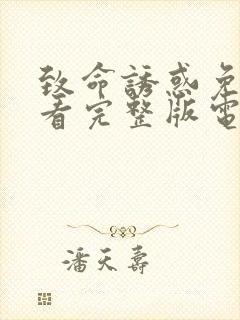 致命誘惑免
看完整版電
潘天壽